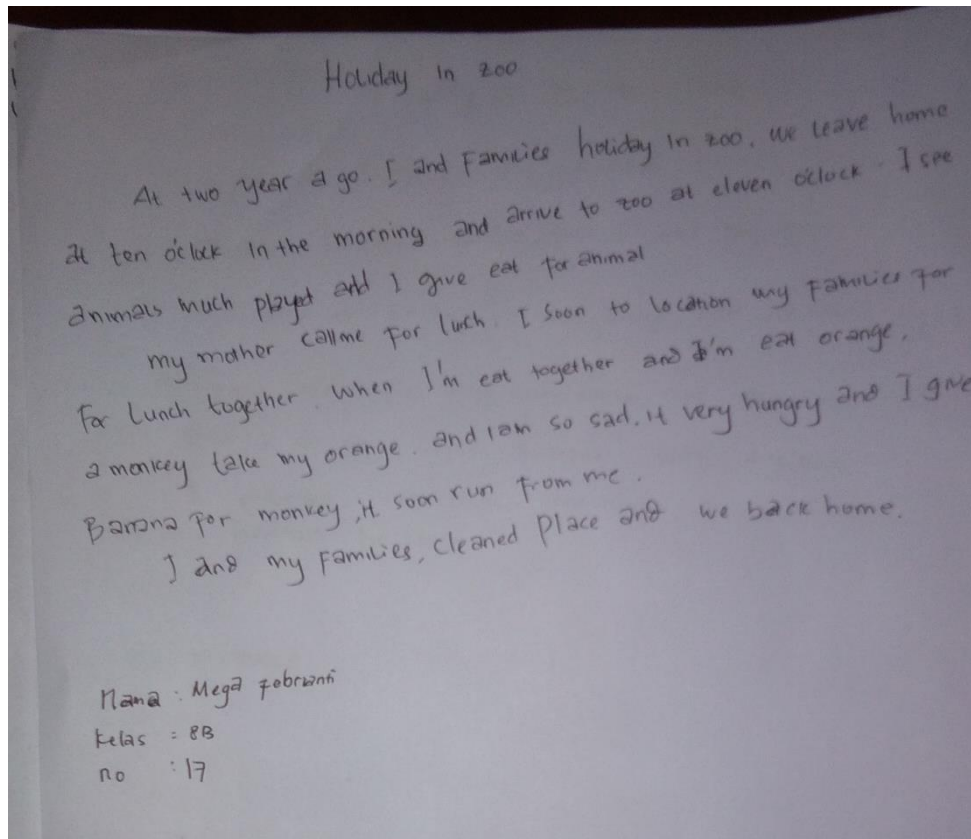 Holiday in zoo
At two year a go. I and Families holiday in zoo, we leave home
at ten o'clock in the morning and arrive to zoo at eleven o'clock. I see
animals much played and I give eat for animal
my mother call me for lunch. I soon to location my families for
for lunch together. when I'm eat together and I'm eat orange.
a monkey take my orange. and I am so sad. it very hungry and I give
Banana for monkey, it soon run from me.
I and my families, cleaned place and we back home.
Nama : Mega Febrianti
Kelas : 8B
no : 17